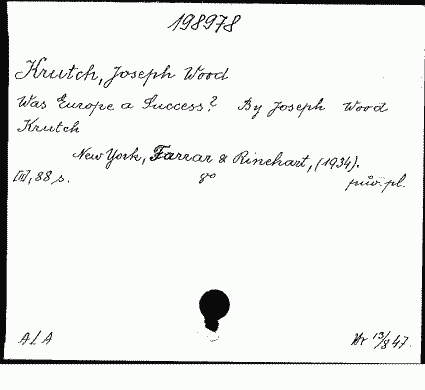 198978
Krutch, Joseph Wood
Was Europe a Success? By Joseph Wood
Krutch
New York, Farrar & Rinehart, (1934).
[I], 88 s. 8° pův. pl.
A/A 13/8 47.